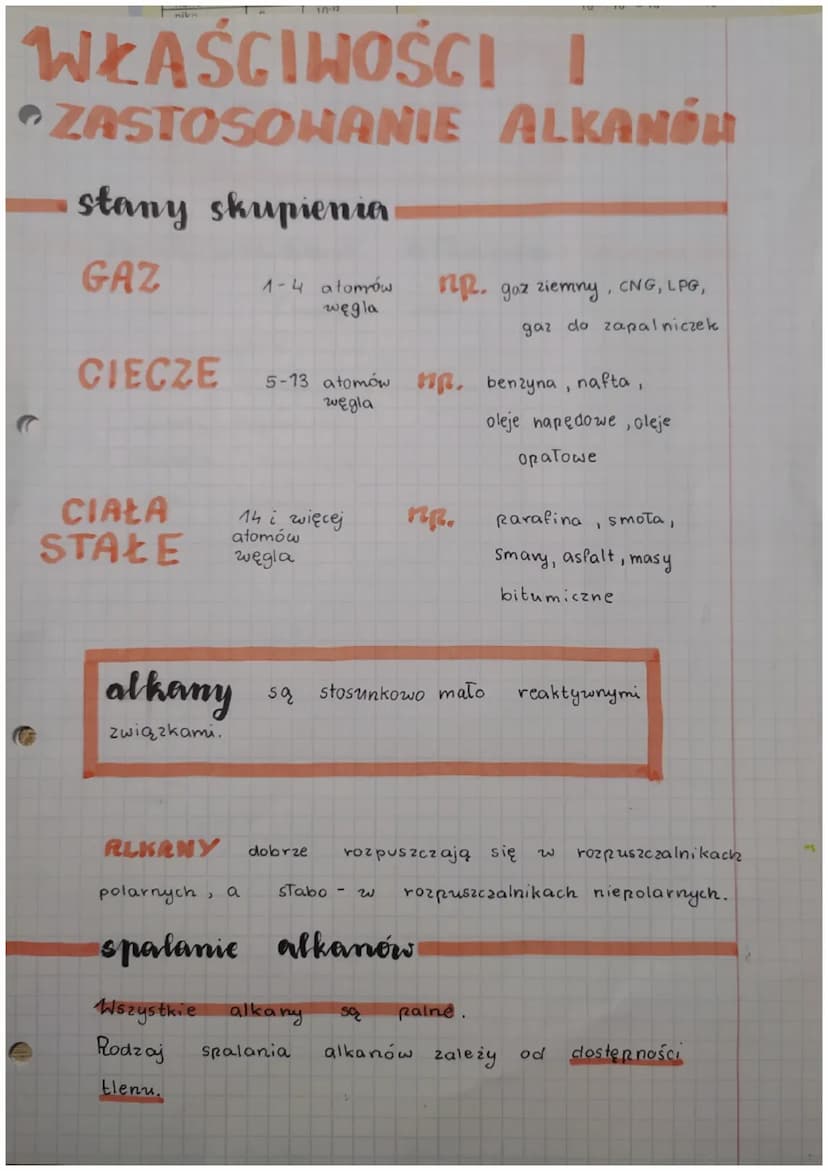 WŁAŚCIWOŚCI I
ZASTOSOWANIE ALKANÓW
stany skupienia
GAZ 1-4 atomów np. gaz ziemny, CNG, LPG,
węgla
gaz do zapalniczek
CIECZE 5-13 atomów np. benzyna, nafta,
węgla
oleje napędowe, oleje
opałowe
CIAŁA 14 i więcej np. parafina, smoła,
STAŁE atomów
węgla smary, asfalt, masy
bitumiczne
alkany są stosunkowo mało reaktywnymi
związkami.
ALKANY dobrze rozpuszczają się w rozpuszczalnikach
polarnych, a słabo - w rozpuszczalnikach niepolarnych.
spalanie alkanów
Wszystkie alkany są palne.
Rodzaj spalania alkanów zależy od dostępności
tlenu.